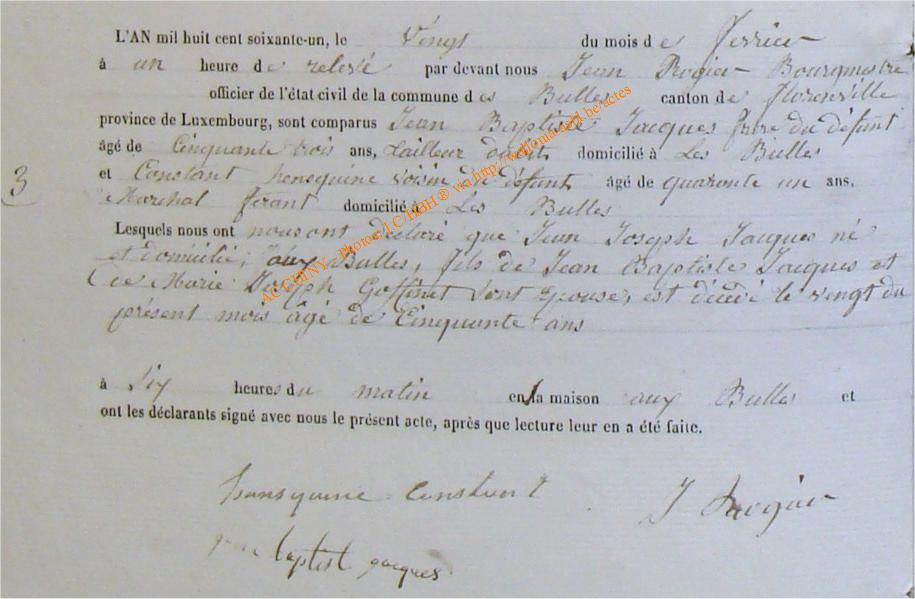 L'AN mil huit cent soixante-un, le Vingt du mois de fevrier
à un heure de relevé par devant nous Jean Rogier Bourgmestre
officier de l'état civil de la commune des Bulles canton de florenville
province de Luxembourg, sont comparus Jean Baptiste Jacques frere du défunt
âgé de Cinquante trois ans, tailleur d'abits domicilié à Les Bulles
3
et Constant hensquine voisin du défunt âgé de quaronte un ans.
Marchal ferant domicilié à Les Bulles
Lesquels nous ont nous ont déclaré que Jean Joseph Jacques né
et domicilié, aux Bulles, fils de Jean Baptiste Jacques et
de Marie Joseph Goffinet sont epouse, est décédé le vingt du
présent mois âgé de Cinquante ans
à Six heures du matin en la maison aux Bulles et
ont les déclarants signé avec nous le présent acte, après que lecture leur en a été faite.
hansquine Constant
J Rogier
baptist jacques
ACGHINY - Photos J.C/HBH © via http://webluxroots.be/actes